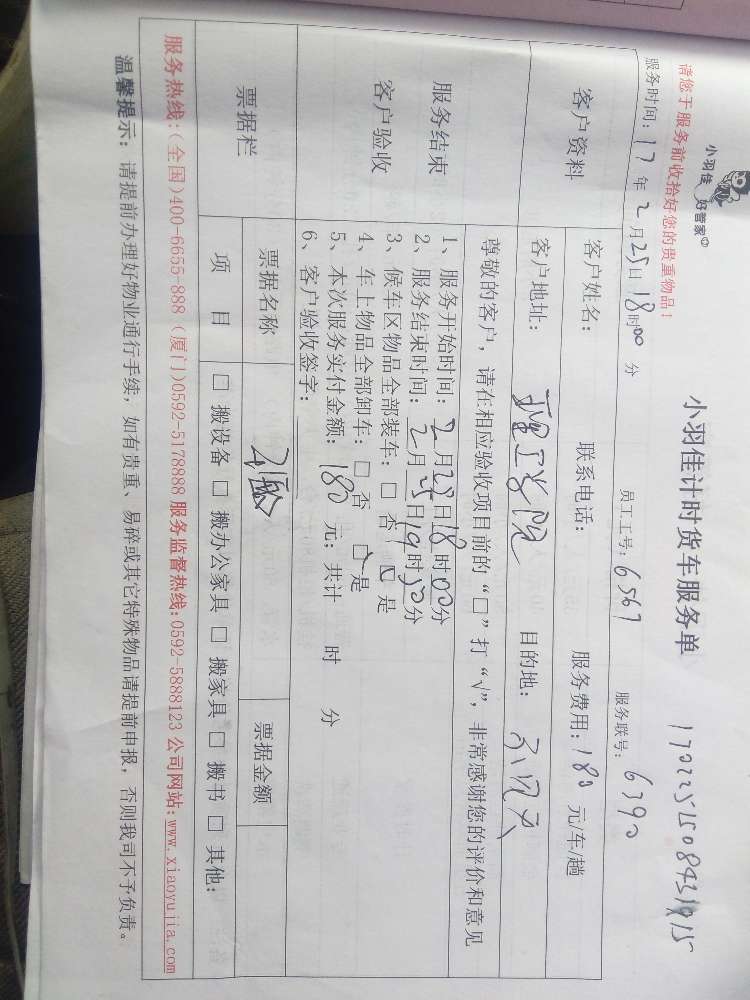 小羽佳 好管家
小羽佳计时货车服务单
请您于服务前收拾好您的贵重物品！
服务时间：17年2月25日18时00分 员工工号：6567 服务联号：6390
客户资料
客户姓名： 联系电话： 服务费用：180 元/车/趟
客户地址：理工学院 目的地：
服务结束
客户验收
尊敬的客户，请在相应验收项目前的“□”打“√”，非常感谢您的评价和意见
1、服务开始时间：2月25日18时00分
2、服务结束时间：2月25日19时50分
3、候车区物品全部装车：□ 否 ☑ 是
4、车上物品全部卸车：□ 否 ☑ 是
5、本次服务实付金额：180 元；共计 时 分
6、客户验收签字：
票据栏
票据名称 票据金额
项 目 □ 搬设备 □ 搬办公家具 □ 搬家具 □ 搬书 □ 其他：
服务热线：(全国)400-6655-888 (厦门)0592-5178888 服务监督热线：0592-5888123 公司网站：www.xiaoyujia.com
温馨提示：请提前办理好物业通行手续，如有贵重、易碎或其它特殊物品请提前申报，否则我司不予负责。